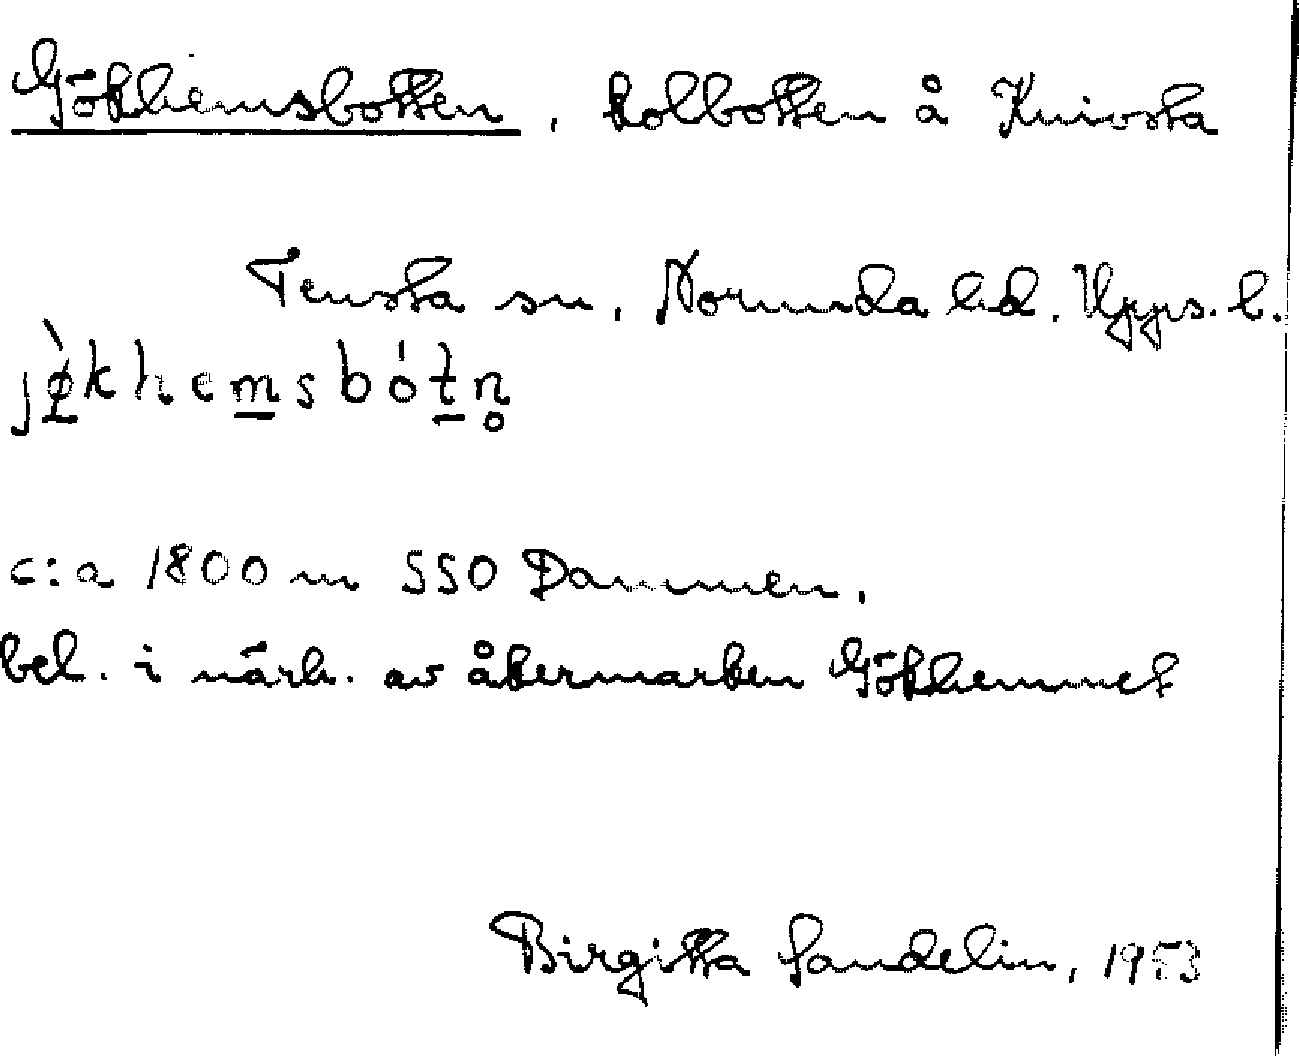 Gökhemsbotten, kolbotten å Knivsta
Tensta sn, Norunda hd. Upps. l.
jø̀khemsbótn̥
c:a 1800 m SSO Dammen,
bel. i närh. av åkermarken Gökhemmet
Birgitta Sandelin, 1953